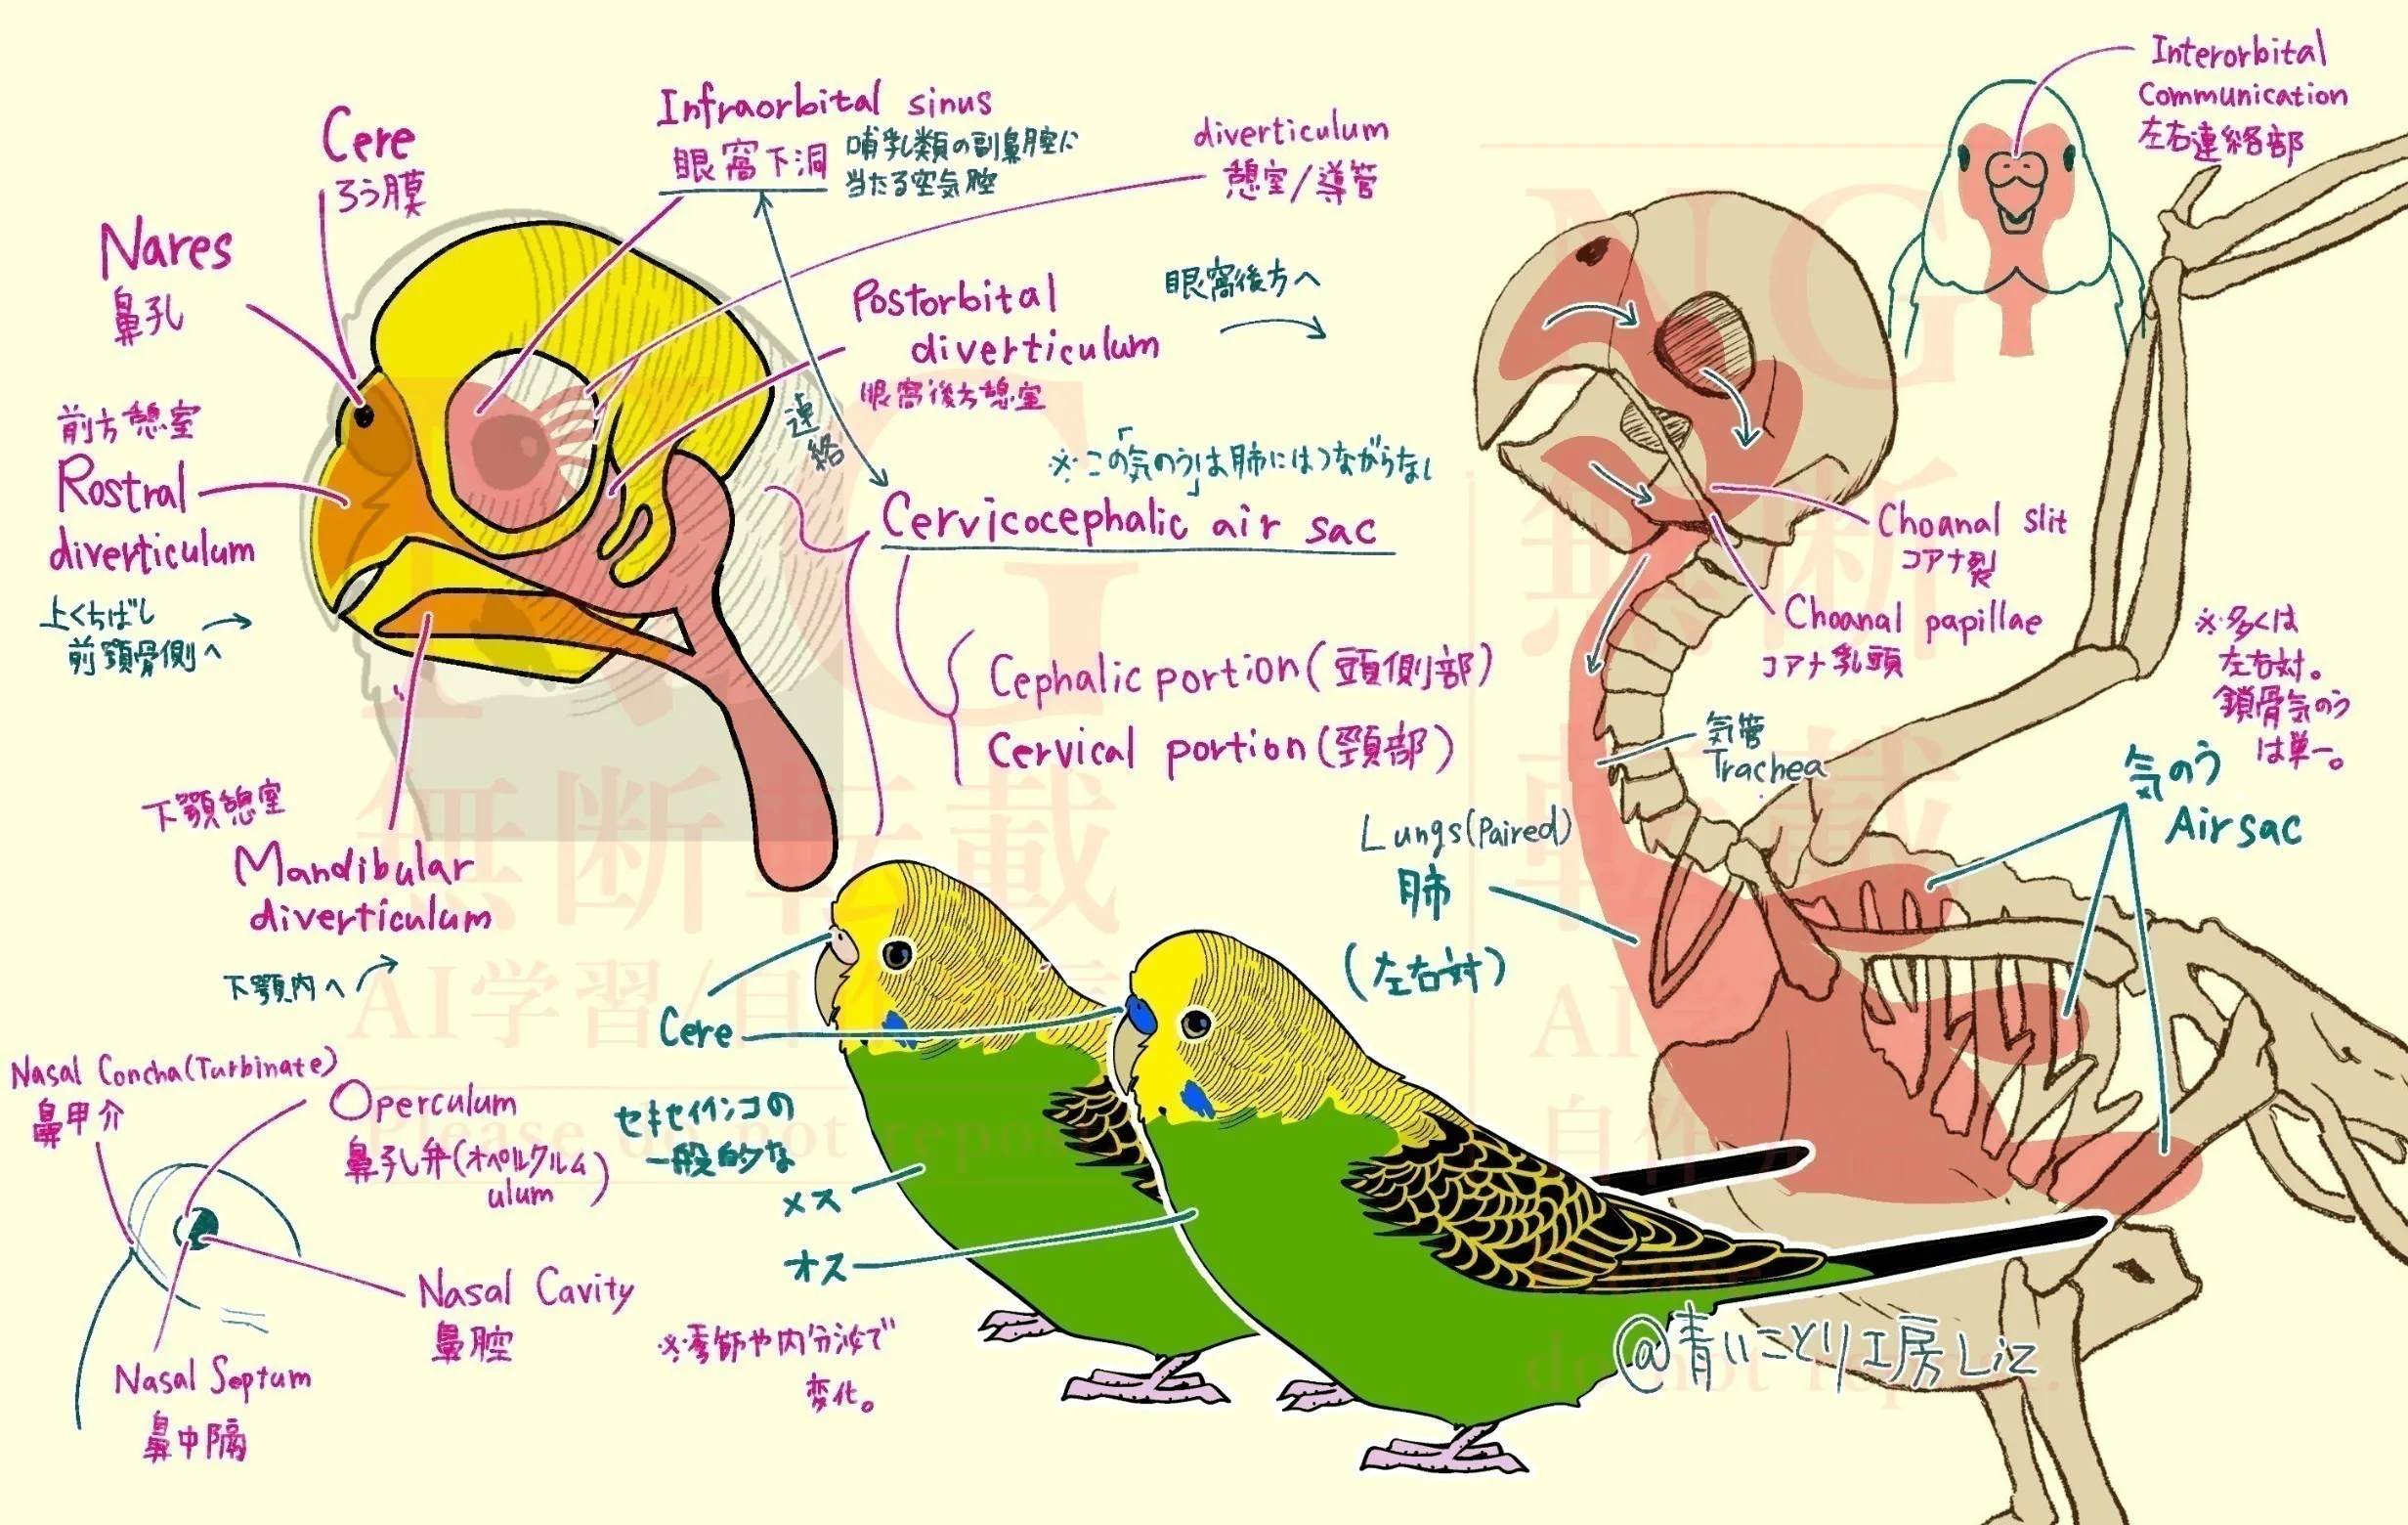 Cere
ろう膜
Nares
鼻孔
前方憩室
Rostral
diverticulum
上くちばし
前顎骨側へ
Infraorbital sinus
眼窩下洞
哺乳類の副鼻腔に
当たる空気腔
diverticulum
憩室/導管
Postorbital
diverticulum
眼窩後方憩室
眼窩後方へ
連絡
※この「気のう」は肺にはつながらない
Cervicocephalic air sac
Cephalic portion(頭側部)
Cervical portion(頸部)
下顎憩室
Mandibular
diverticulum
下顎内へ
Nasal Concha(Turbinate)
鼻甲介
Operculum
鼻孔弁(オペルクルム)
ulum
Nasal Cavity
鼻腔
Nasal Septum
鼻中隔
Cere
セキセイインコの
一般的な
メス
オス
※季節や内分泌で
変化。
Interorbital
Communication
左右連絡部
Choanal slit
コアナ裂
Choanal papillae
コアナ乳頭
気管
Trachea
Lungs(Paired)
肺
(左右対)
※多くは
左右対。
鎖骨気のう
は単一。
気のう
Airsac
@青いことり工房Liz
NG
無断転載
AI学習/自作
Please do not repost
NG
無断
転載
AI学
自作
do not repost.